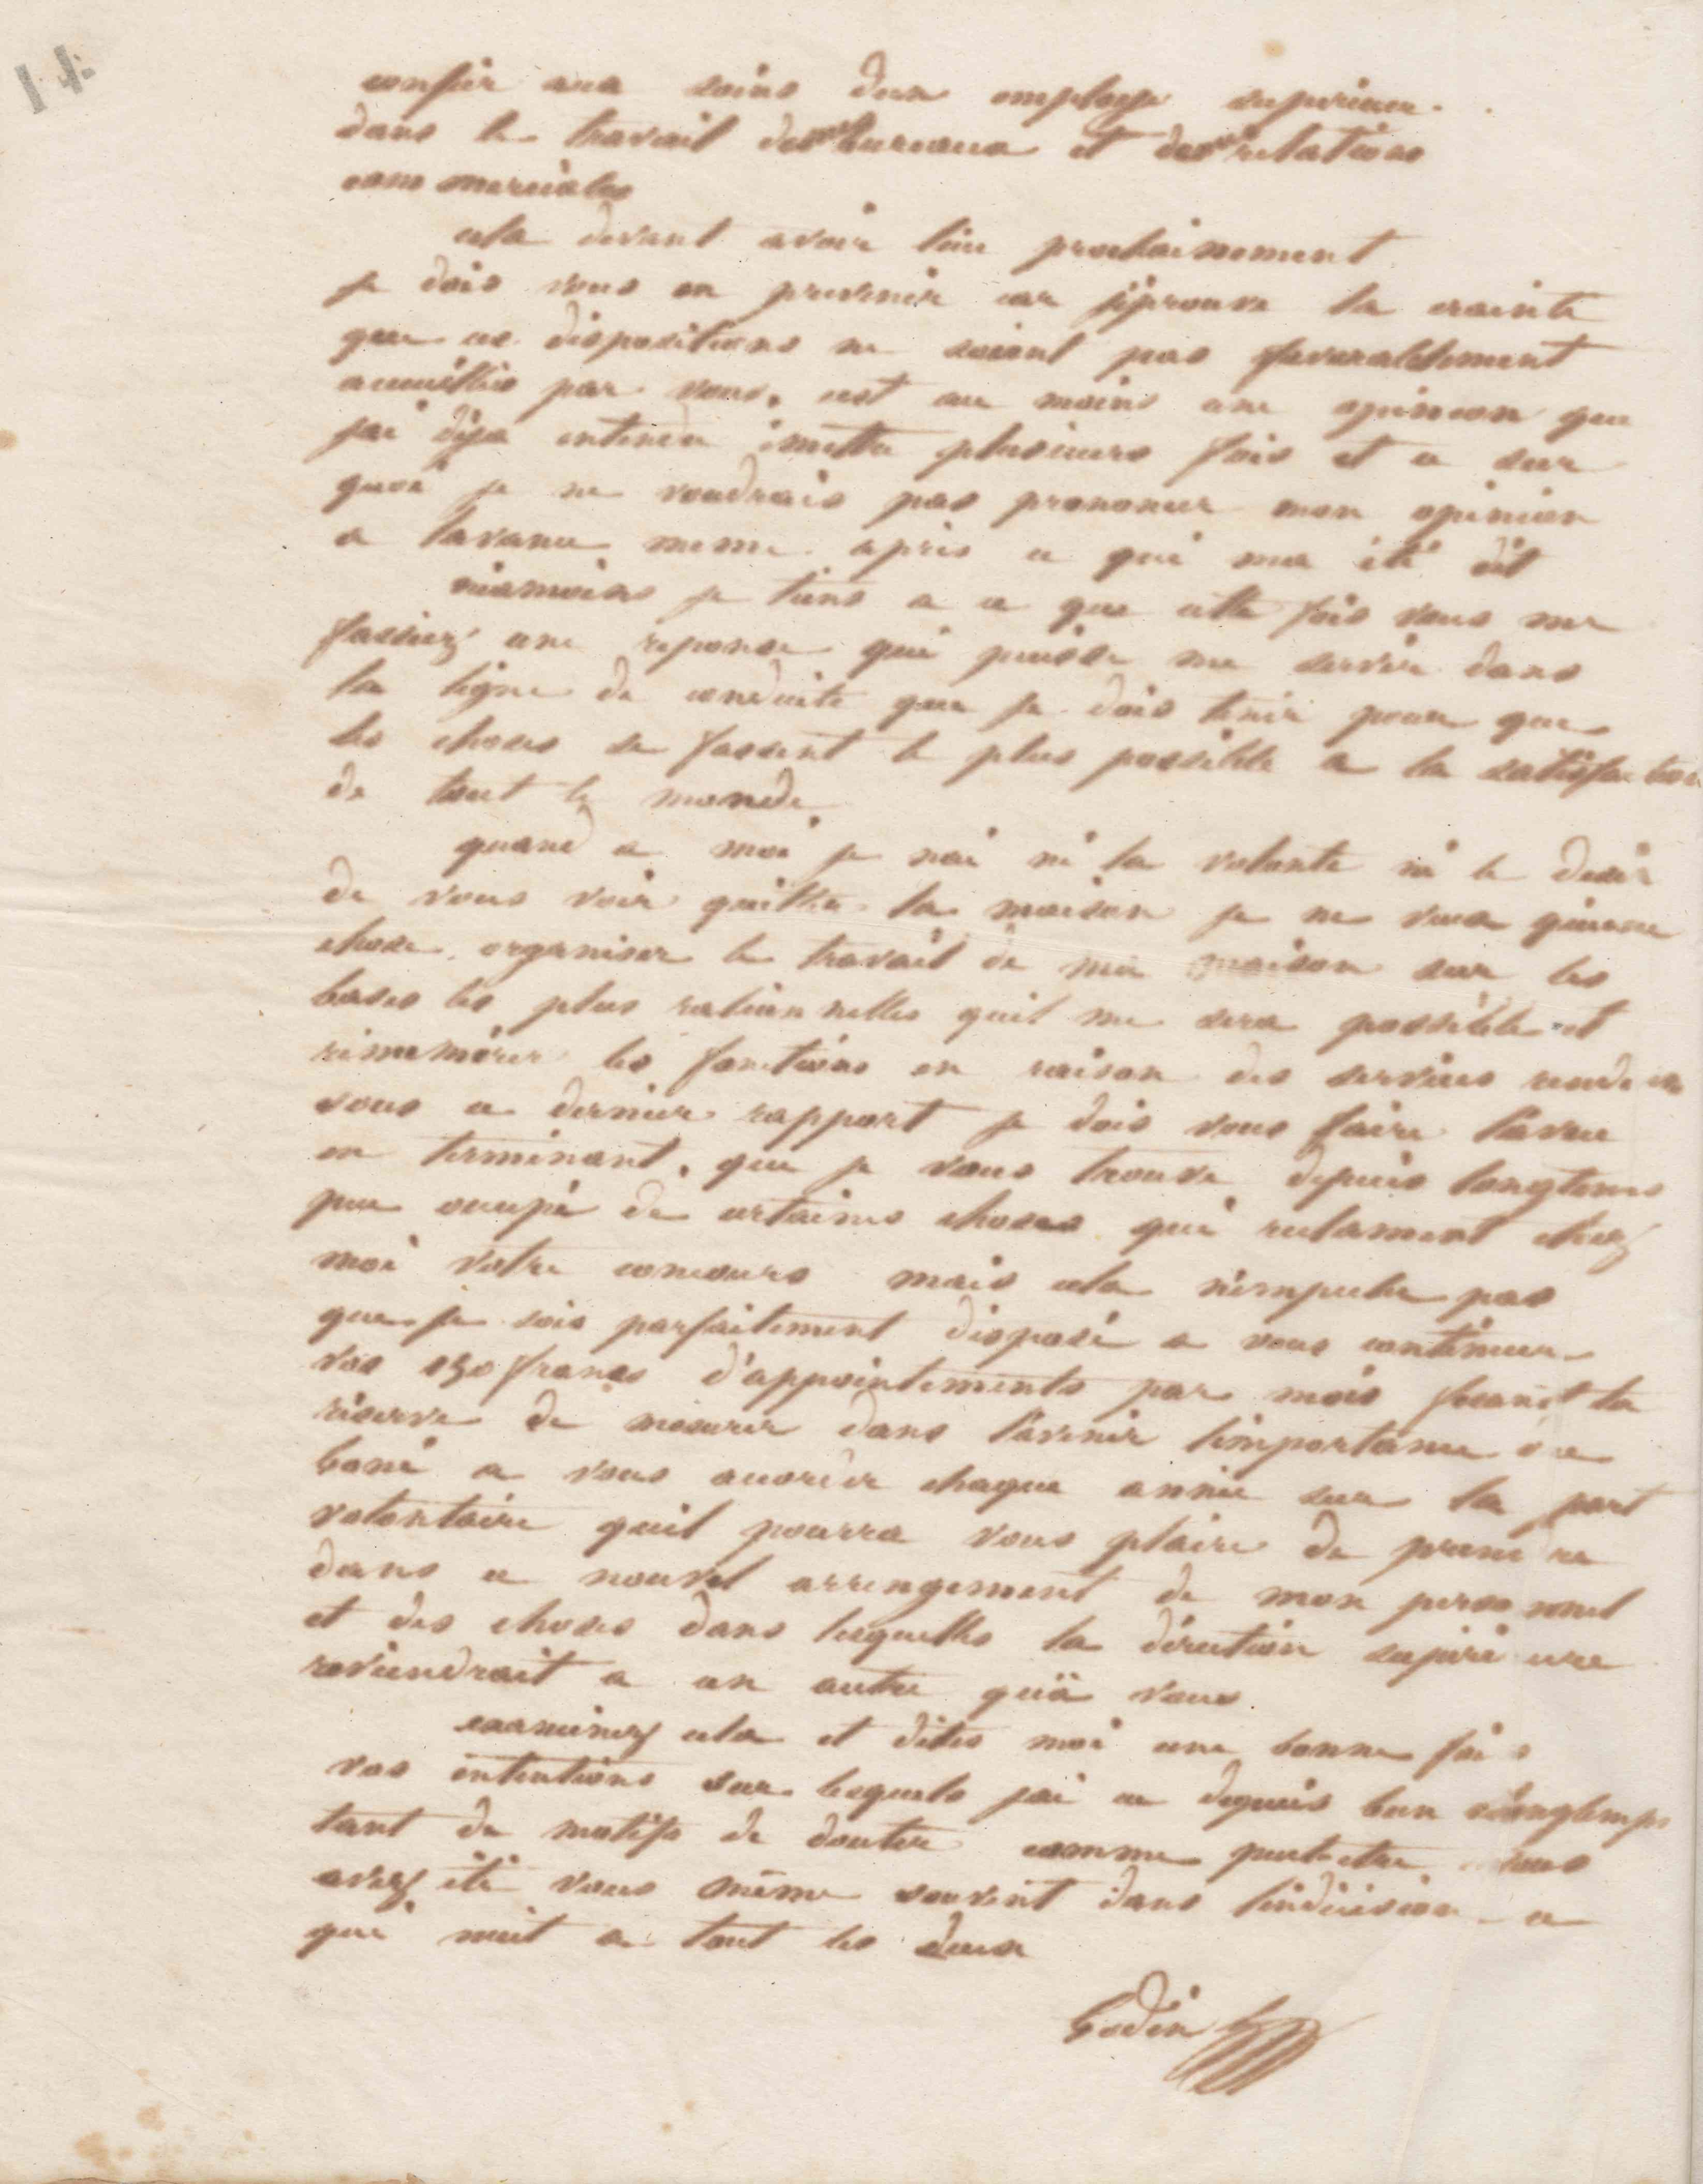 14
confier aux soins d'un employé superieur
dans le travail des bureaux et des relations
commerciales
cela devant avoir lieu prochainement
je dois vous en prevenir car j'éprouve la crainte
que ces dispositions ne soient pas favorablement
accueillies par vous, cest au moins une opinion que
jai déja entendu émettre plusieurs fois et ce sur
quoi je ne voudrais pas prononcer mon opinion
a lavance meme apres ce qui ma été dit
néamoins je tiens a ce que cette fois vous me
fassiez une reponse qui puisse me servir dans
la ligne de conduite que je dois tenir pour que
les choses se fassent le plus possible a la satisfaction
de tout le monde
quand a moi je nai ni la volonté ni le desir
de vous voir quitter la maison je ne veux qu'une
chose, organiser le travail de ma maison sur les
bases les plus rationnelles quil me sera possible et
rémunérer les fonctions en raison des services rendus
sous ce dernier rapport je dois vous faire l'aveu
en terminant, que je vous trouve depuis longtems
peu occupé de certaines choses qui reclament chez
moi votre concours mais cela n'empeche pas
que je sois parfaitement disposé a vous continuer
vos 250 francs d'appointements par mois la
réserve de mesurer dans l'avenir l'importance du
boni a vous accorder chaque année sur la part
volontaire quil pourra vous plaire de prendre
dans ce nouvel arrengement de mon personnel
et des choses dans lesquelles la direction supérieure
reviendrait a un autre qu'a vous
examinez cela et dites moi une bonne fois
vos intentions sur lesquels jai eu depuis bien longtemps
tant de motifs de douter comme peut etre vous
avez été vous même souvent dans l'indécision ce
qui nuit a tout les deux
Godin